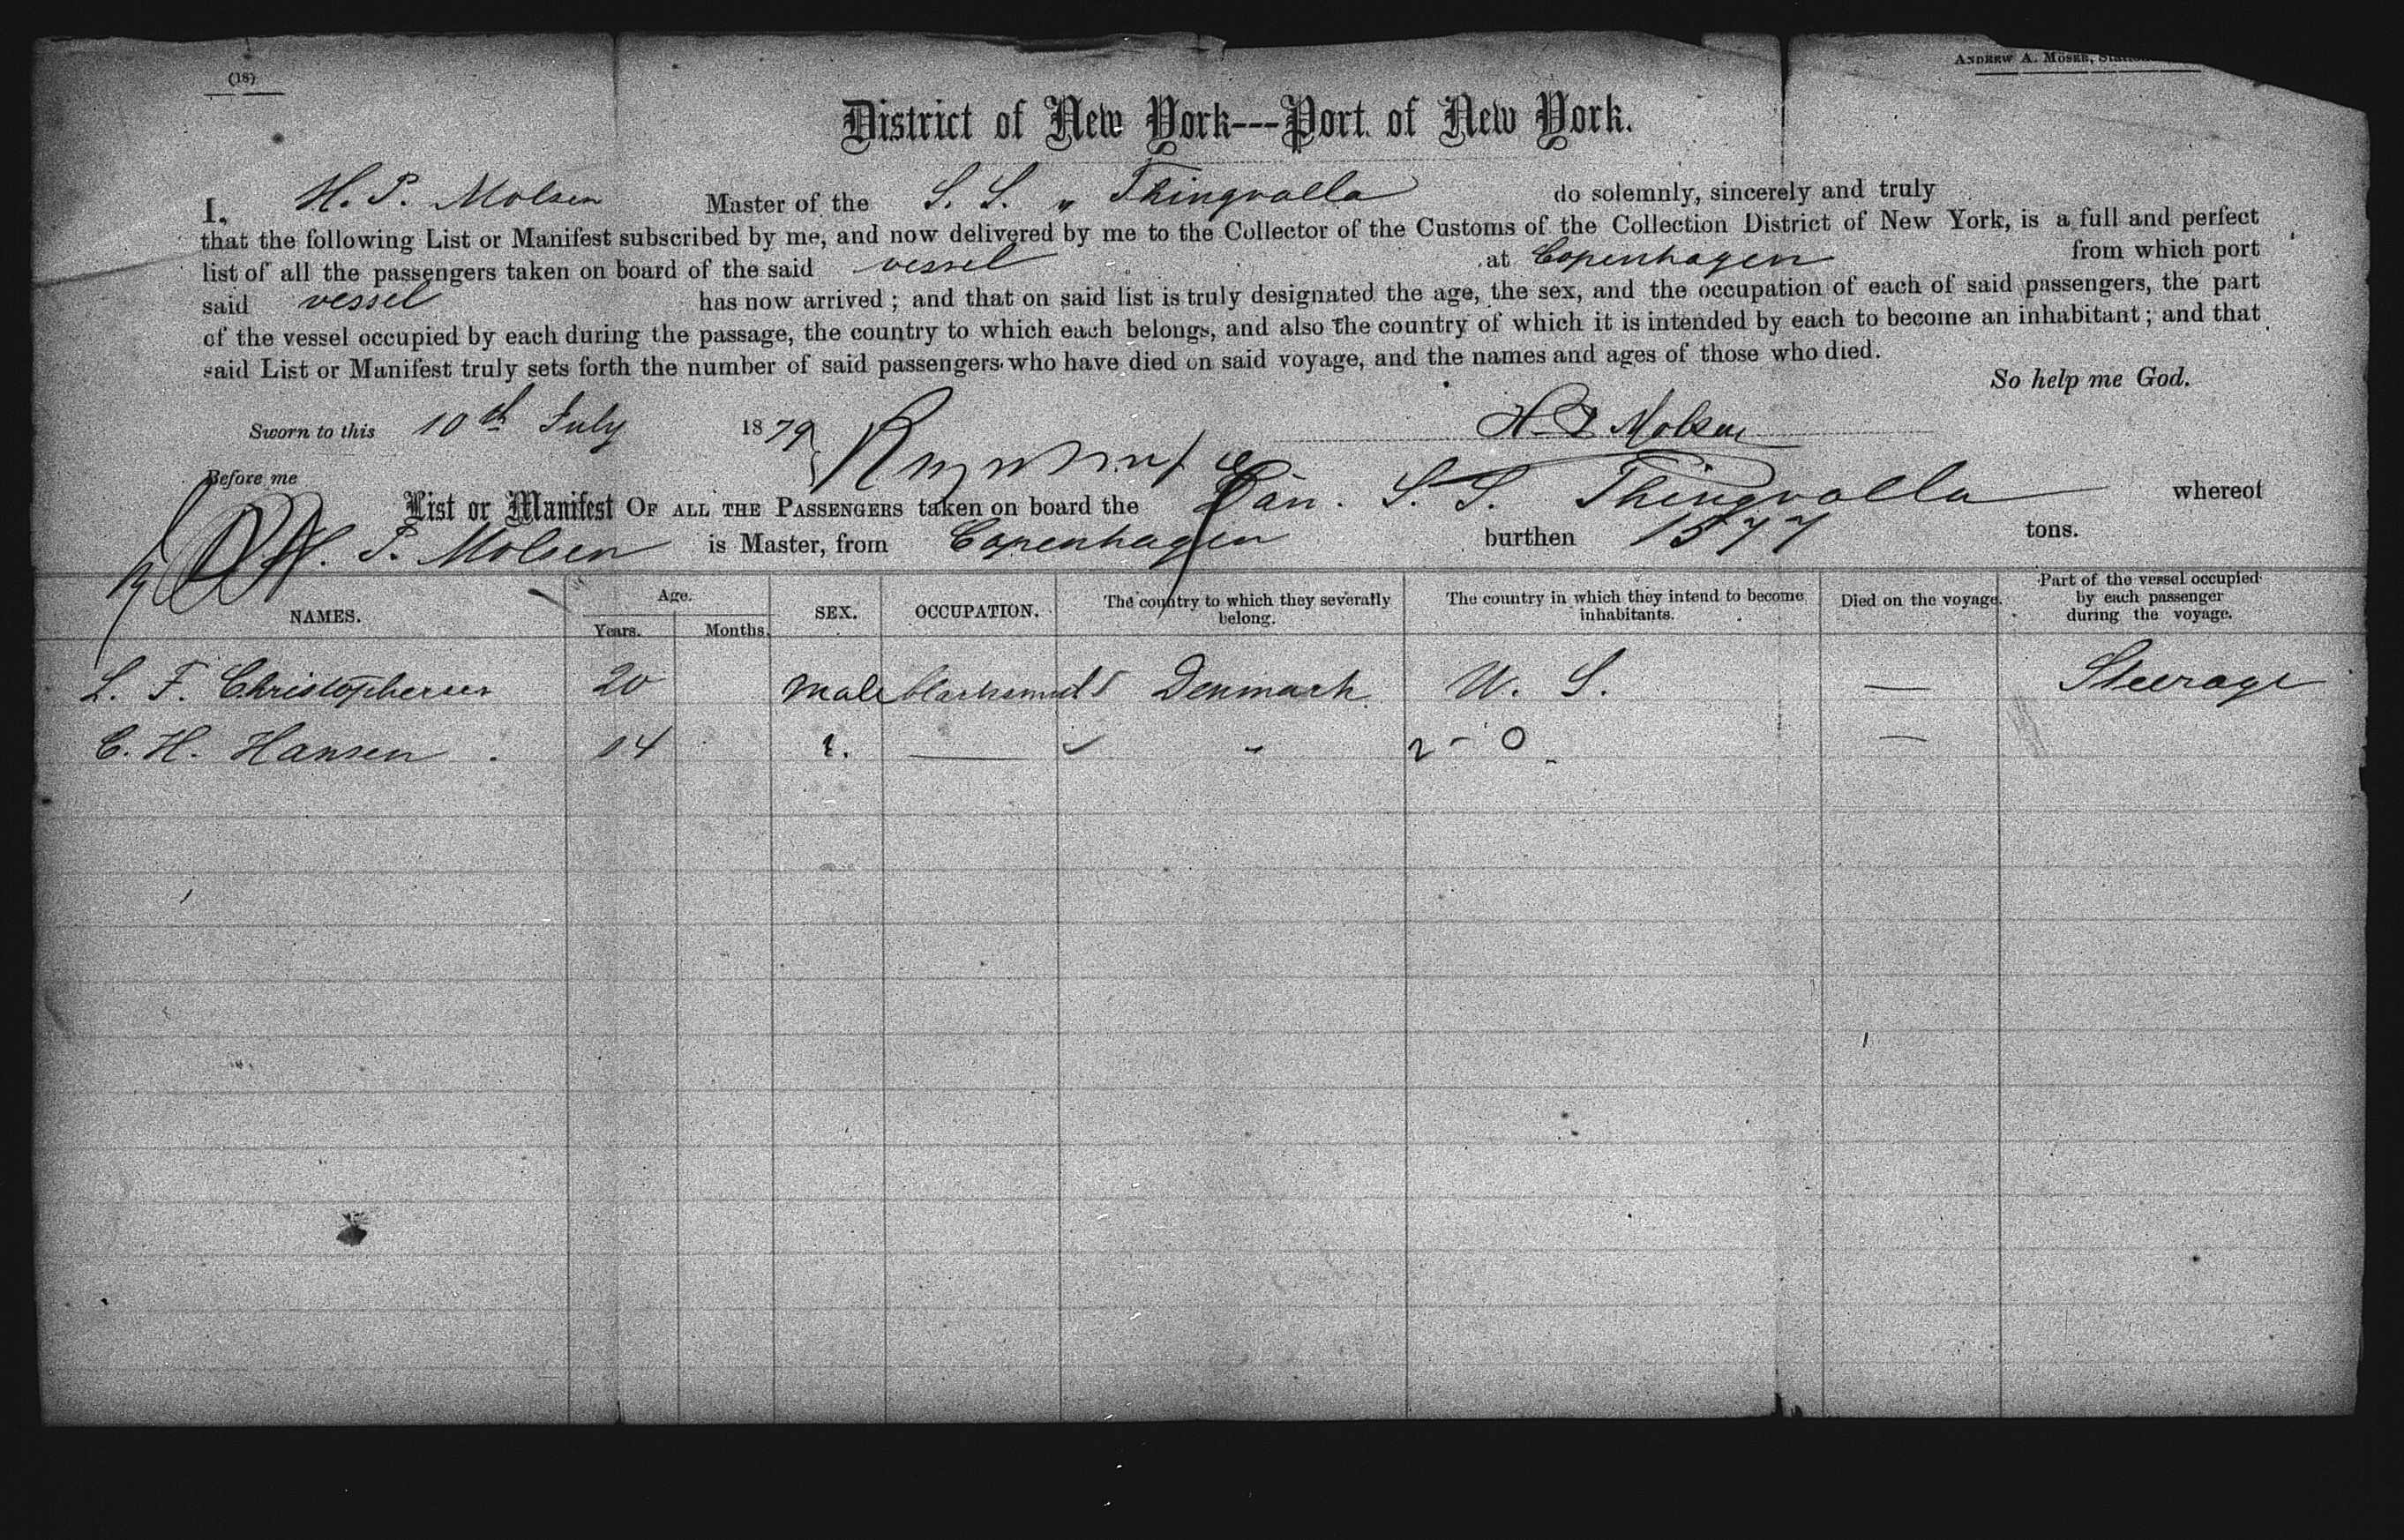 (18)
ANDREW A. MOSER,
District of New York---Port of New York.
I, H. P. Molsen Master of the S. S. " Thingvalla do solemnly, sincerely and truly
that the following List or Manifest subscribed by me, and now delivered by me to the Collector of the Customs of the Collection District of New York, is a full and perfect
list of all the passengers taken on board of the said vessel at Copenhagen from which port
said vessel has now arrived ; and that on said list is truly designated the age, the sex, and the occupation of each of said passengers, the part
of the vessel occupied by each during the passage, the country to which each belongs, and also the country of which it is intended by each to become an inhabitant ; and that
said List or Manifest truly sets forth the number of said passengers who have died on said voyage, and the names and ages of those who died.
So help me God.
Sworn to this 10th July 1879 H. P. Molsen
Before me
List or Manifest OF ALL THE PASSENGERS taken on board the Dan. S. S. Thingvalla whereof
H. P. Molsen is Master, from Copenhagen burthen 1577 tons.
NAMES. Age. Years. Months. SEX. OCCUPATION. The country to which they severally belong. The country in which they intend to become inhabitants. Died on the voyage. Part of the vessel occupied by each passenger during the voyage.
L. F. Christophersen 20 male blacksmith Denmark U. S. — Steerage
C. H. Hansen 14 — " 2 - 0 —